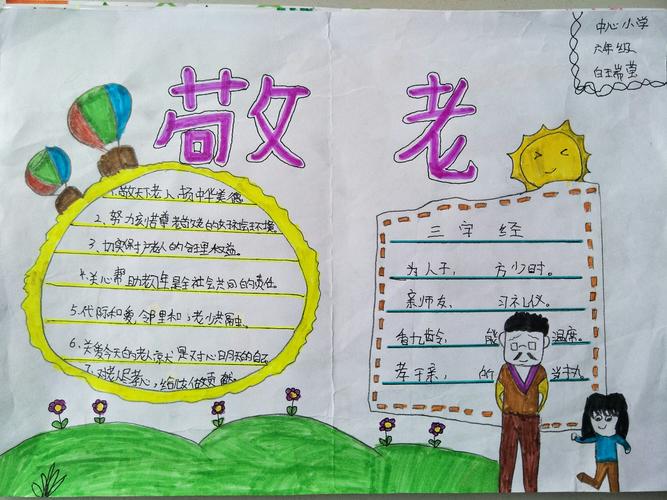 敬老
中心小学
六年级
白玉瑞莹
1.敬天下老人,扬中华美德
2.努力营造尊老敬老的好社会环境
3.切实保护老人的合理权益。
4.关心帮助老年是全社会共同的责任。
5.代际和爱邻里和,老少共融融。
6.关爱今天的老人,就是关心明天的自己
7.对老人尽孝心,给以做贡献
三字经
为人子,方少时。
亲师友,习礼仪。
香九龄,能温席。
孝于亲,所当执